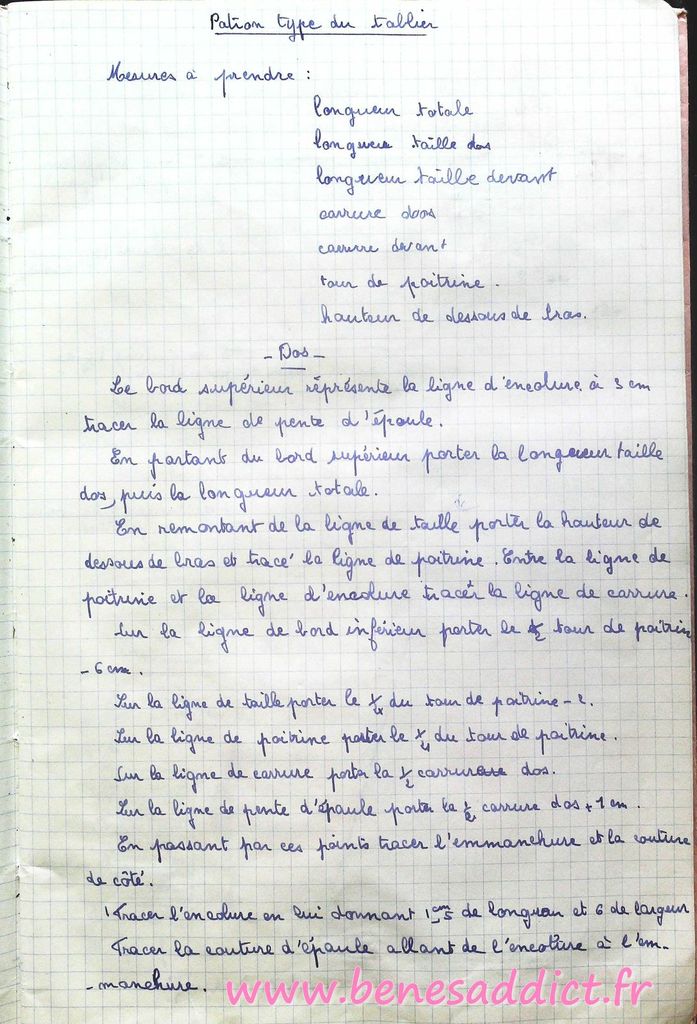 Patron type du tablier
Mesures à prendre :
longueur totale
longueur taille dos
longueur taille devant
carrure dos
carrure devant
tour de poitrine.
hauteur de dessous de bras.
- Dos -
Le bord supérieur réprésente la ligne d'encolure. à 3 cm
tracer la ligne de pente d'épaule.
En partant du bord supérieur porter la longueur taille
dos, puis la longueur totale.
En remontant de la ligne de taille porter la hauteur de
dessous de bras et tracé la ligne de poitrine. Entre la ligne de
poitrine et la ligne d'encolure tracer la ligne de carrure.
Sur la ligne de bord inférieur porter le 1/2 tour de poitrine
- 6 cm.
Sur la ligne de taille porter le 1/4 du tour de poitrine - 2.
Sur la ligne de poitrine porter le 1/4 du tour de poitrine.
Sur la ligne de carrure porter la 1/2 carrure dos.
Sur la ligne de pente d'épaule porter la 1/2 carrure dos + 1 cm.
En passant par ces points tracer l'emmanchure et la couture
de côté.
Tracer l'encolure en lui donnant 1 cm 5 de longueur et 6 de largeur
Tracer la couture d'épaule allant de l'encolure à l'em-
-manchure.
www.benesaddict.fr